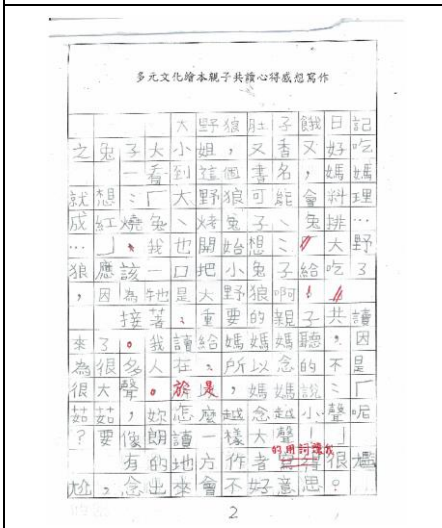 多元文化繪本親子共讀心得感想寫作
大野狼肚子餓日記
之兔子大小姐,又香又好吃
一看到這個書名,媽媽
就想:「大野狼可能會料理
成紅燒兔、烤兔子、兔排…
…」我也開始想:「大野
狼應該一口把小兔子給吃了
,因為牠是大野狼啊!」
接著,重要的親子共讀
來了。我讀給媽媽媽聽,因
為很多人在,所以念的不是
很大聲。於是,媽媽說:「
茹茹,妳怎麼越念越小聲呢
?要像朗讀一樣大聲!」
的用詞讓我
有的地方作者寫得很尷
尬,念出來會不好意思。
2